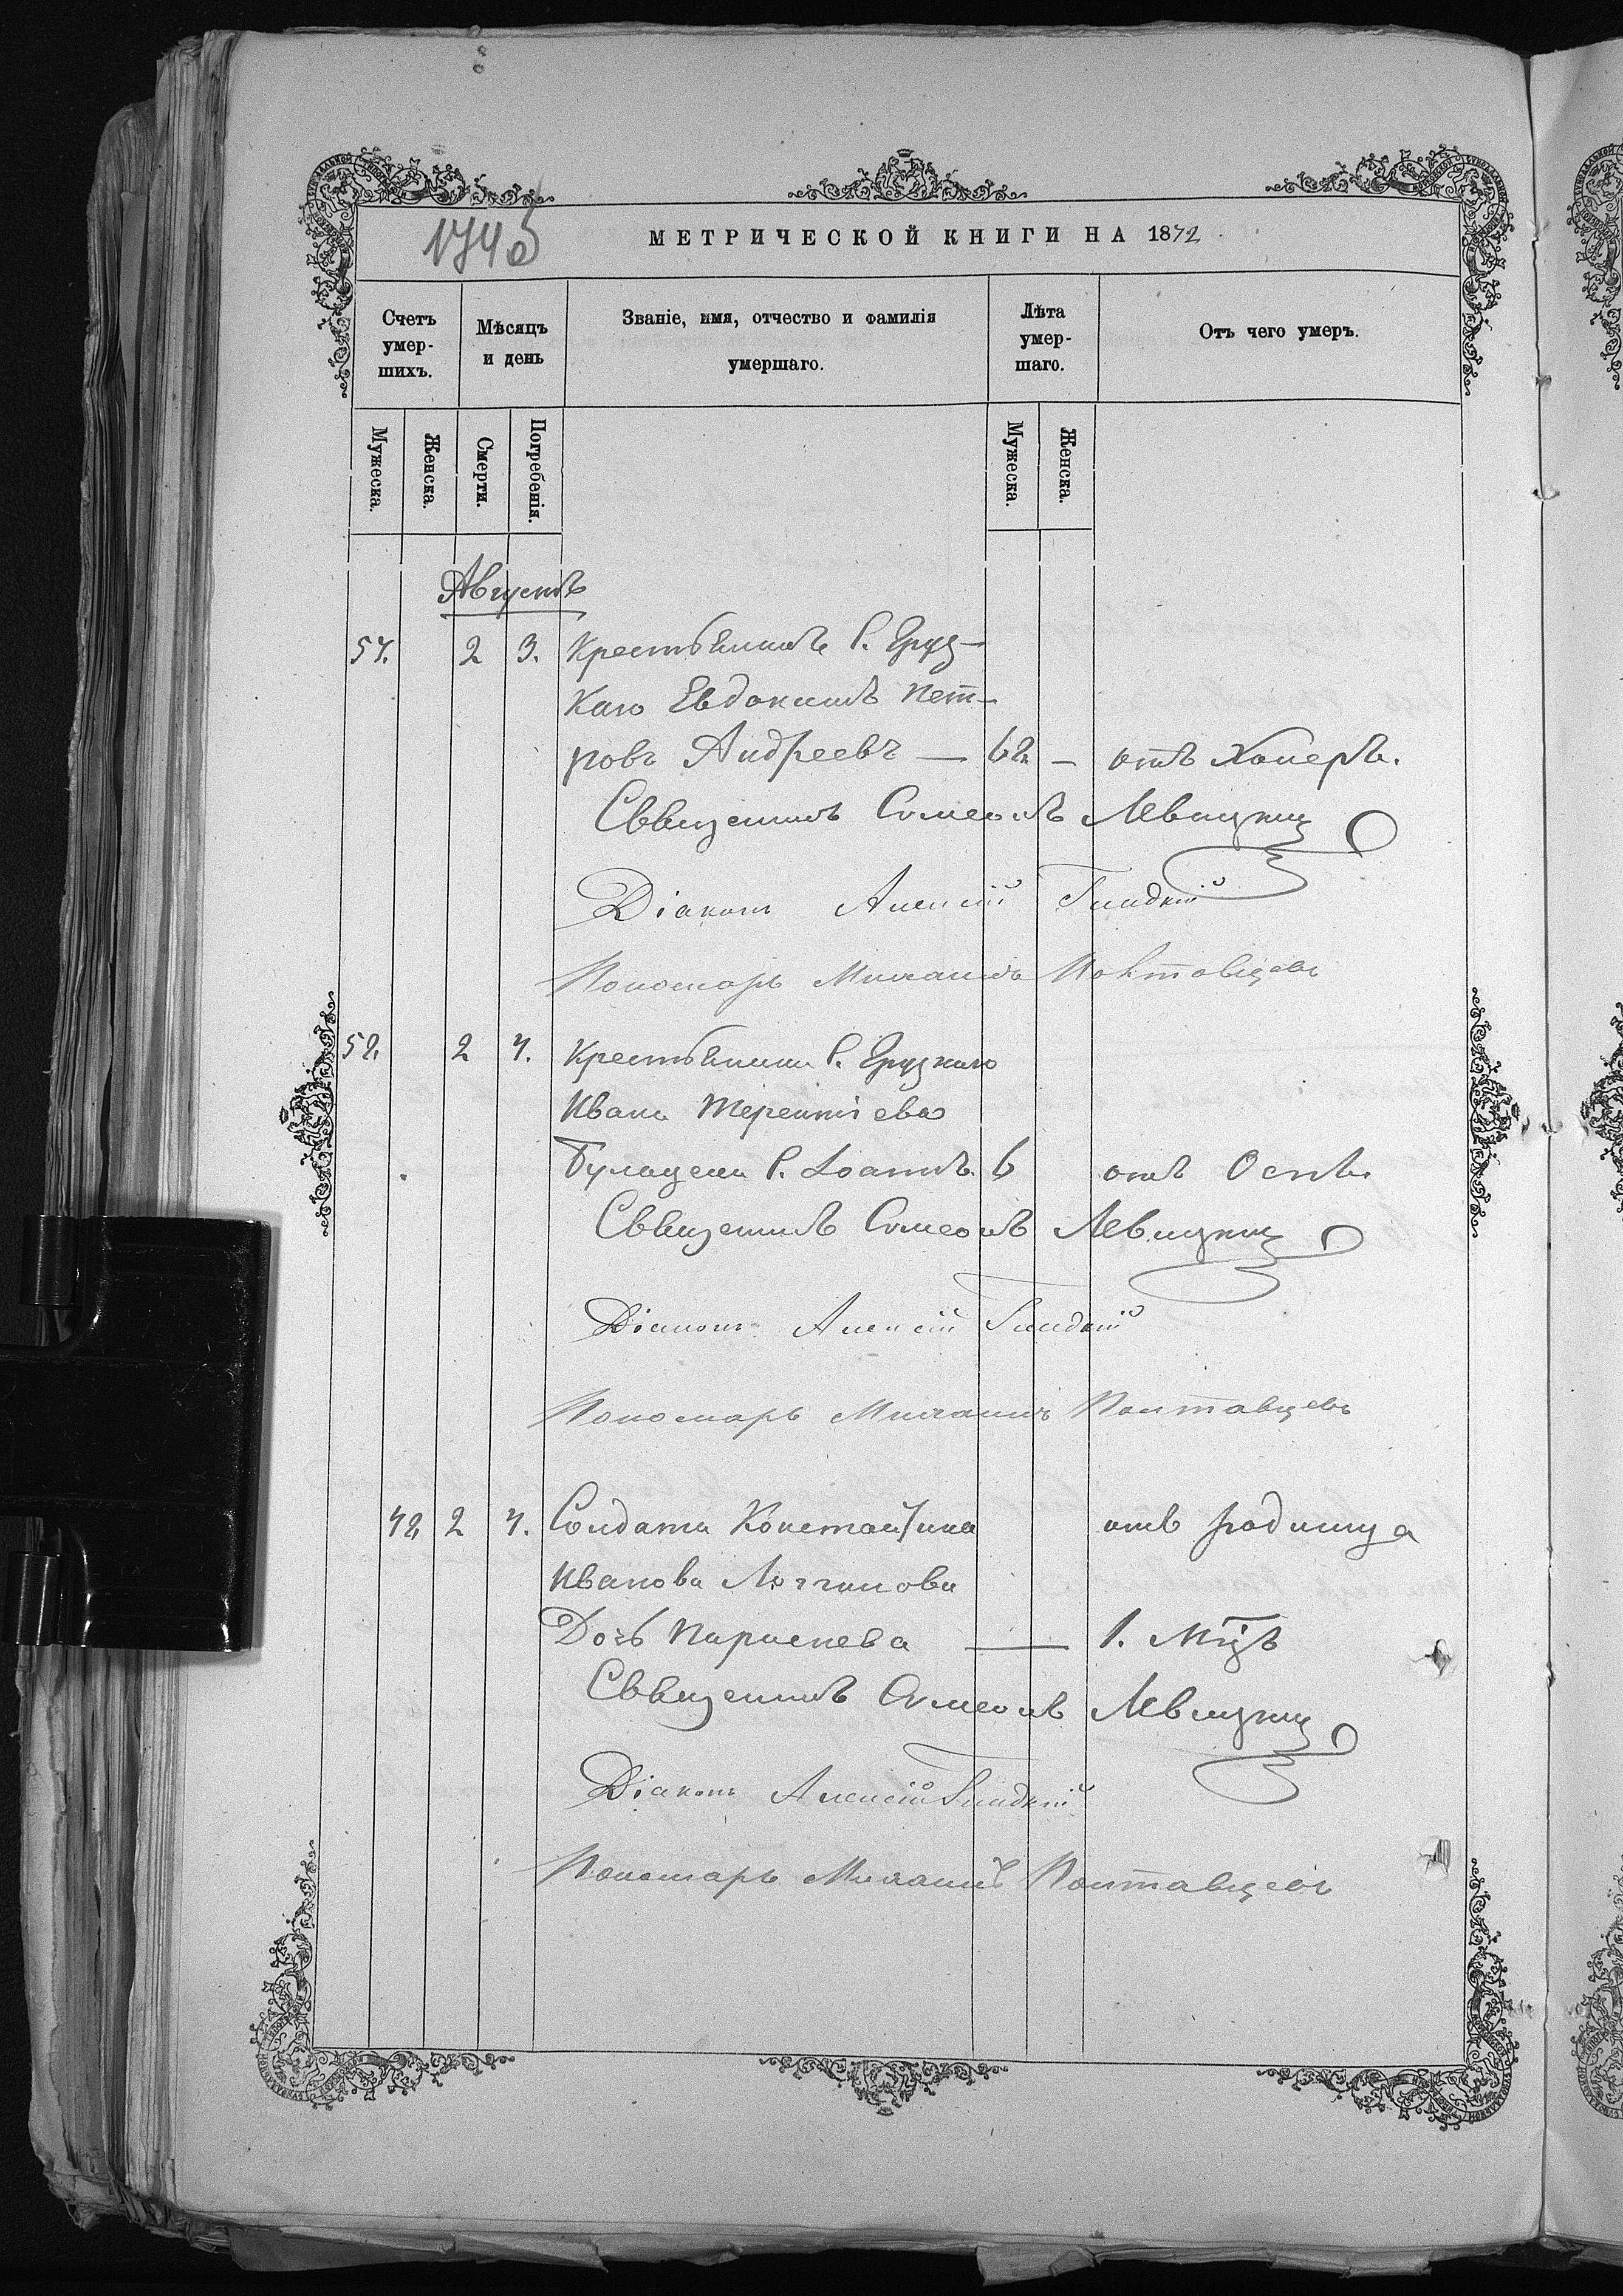 1745
МЕТРИЧЕСКОЙ КНИГИ НА 1872
Счетъ умер-шихъ.
Мѣсяцъ и день
Званіе, имя, отчество и фамилія умершаго.
Лѣта умер-шаго.
Отъ чего умеръ.
Мужеска.
Женска.
Смерти.
Погребенія.
Мужеска.
Женска.
Августъ
57. 2 3. Крестьянинъ С. Груз-
каго Евдокимъ Пет-
ровъ Андреевъ — 62 — отъ Холеры.
Священникъ Симеонъ Левицкій
Діаконъ Алексій
Пономарь Михаилъ Полтавцевъ
58. 2 4. Крестьянина С. Грузкаго
Ивана Терентіева
С. Іоаннъ. 6 отъ Оспы
Священникъ Симеонъ Левицкій
Діаконъ Алексій
Пономарь Михаилъ Полтавцевъ
42 2 4. Солдата Константина отъ родимца
Иванова Логгинова
Дочь Параскева — 1. Мцъ
Священникъ Симеонъ Левицкій
Діаконъ Алексій
Пономарь Михаилъ Полтавцевъ